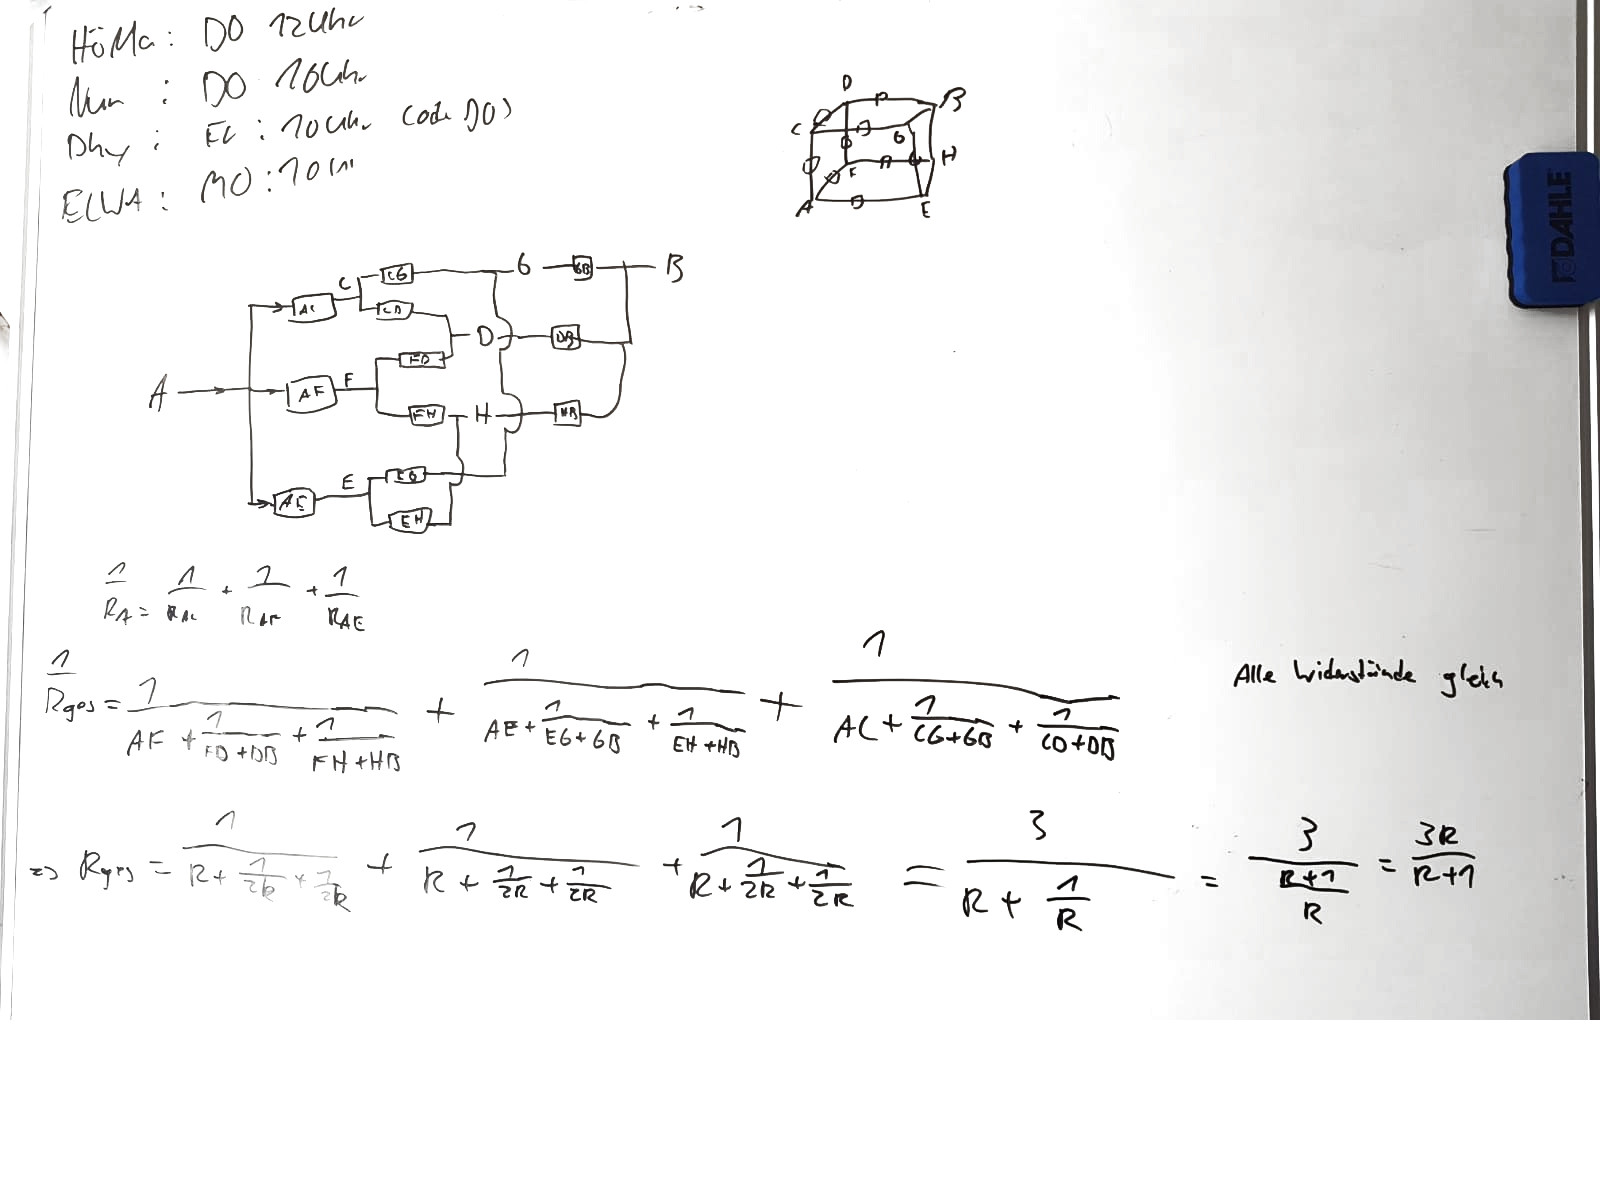 HöMa: DO 12Uhr
Num : DO 16Uhr
Dhy : EL : 10Uhr Code DO)
ELWA : MO : 10Uhr
D
B
C
G
F
H
A
E
C CG G GB B
AC
CD
D DB
FD
A AF F
FH H HB
E EG
AE
EH
1/RA = 1/RAC + 1/RAF + 1/RAE
1/Rges = 1/(AF + 1/(FD+DB) + 1/(FH+HB)) + 1/(AE + 1/(EG+GB) + 1/(EH+HB)) + 1/(AC + 1/(CG+GB) + 1/(CD+DB))
Alle Widerstände gleich
=> Rges = 1/(R + 1/2R + 1/2R) + 1/(R + 1/2R + 1/2R) + 1/(R + 1/2R + 1/2R) = 3/(R + 1/R) = 3/((R+1)/R) = 3R/(R+1)
DAHLE